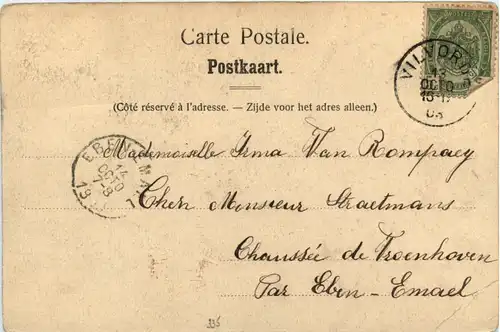 Carte Postale.
Postkaart.
(Côté réservé à l'adresse. — Zijde voor het adres alleen.)
VILVORDE
13
OCTO
03
EBEN
14
OCTO
7-8
19
Mademoiselle Irma Van Rompaey
Chez Monsieur Straetmans
Chaussée de Troenhoven
Par Eben-Emael
335